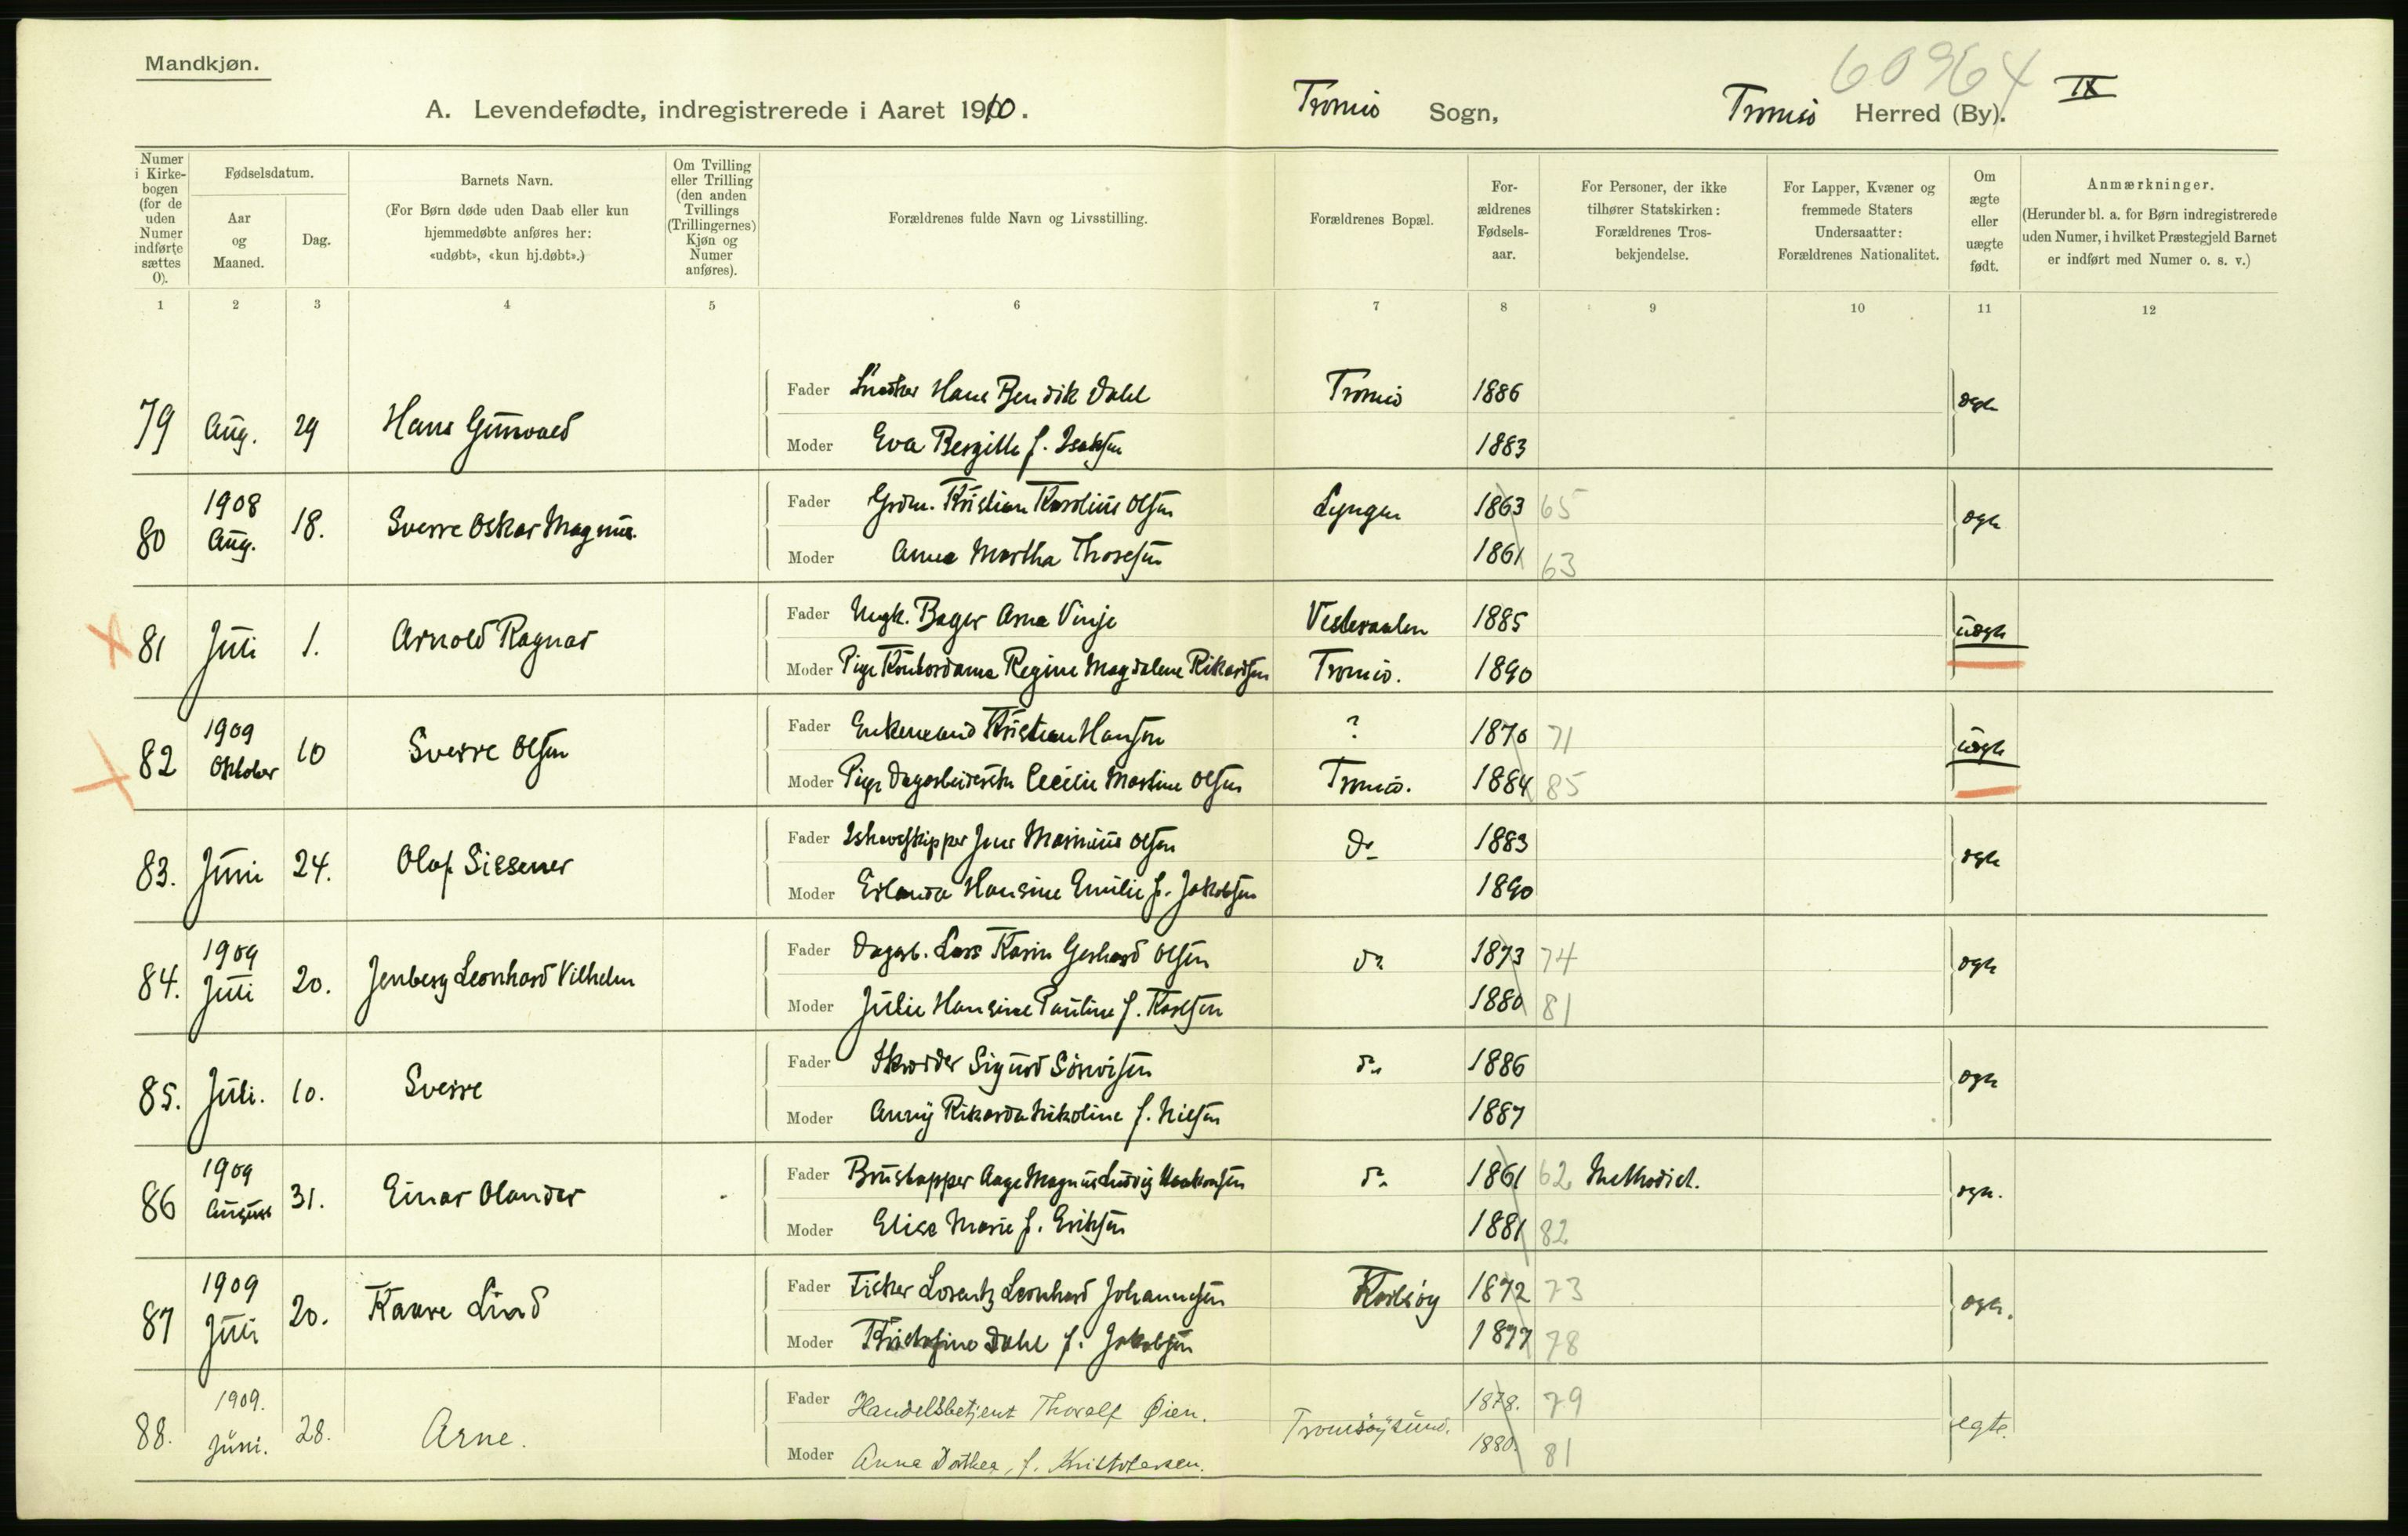 Mandkjøn.
60964
IX
A. Levendefødte, indregistrerede i Aaret 1910.
Tromsø Sogn,
Tromsø Herred (By).
Numer i Kirkebogen (for de uden Numer indførte sættes 0).
Fødselsdatum.
Aar og Maaned.
Dag.
Barnets Navn.
(For Børn døde uden Daab eller kun hjemmedøbte anføres her: «udøbt», «kun hj.døbt».)
Om Tvilling eller Trilling (den anden Tvillings (Trillingernes) Kjøn og Numer anføres).
Forældrenes fulde Navn og Livsstilling.
Forældrenes Bopæl.
Forældrenes Fødselsaar.
For Personer, der ikke tilhører Statskirken: Forældrenes Trosbekjendelse.
For Lapper, Kvæner og fremmede Staters Undersaatter: Forældrenes Nationalitet.
Om ægte eller uægte født.
Anmærkninger.
(Herunder bl. a. for Børn indregistrerede uden Numer, i hvilket Præstegjeld Barnet er indført med Numer o. s. v.)
1 2 3 4 5 6 7 8 9 10 11 12
79 Aug. 29 Hans Gunvald
Fader Snedker Hans Bendik Dahl Tromsø 1886 ægte
Moder Eva Bergitte f. Isaksen 1883
80 1908 Aug. 18. Sverre Oskar Magnus.
Fader Grdm. Kristian Karolius Olsen Lyngen 1863 65 ægte
Moder Anna Martha Thoresen 1861 63
81 Juli 1. Arnold Ragnar
Fader Ungk. Bager Arne Vinje Vesteraalen 1885 uægte
Moder Pige Kontordame Regine Magdalene Rikardsen Tromsø. 1890
82 1909 Oktober 10 Sverre Olsen
Fader Enkemand Kristian Hansen ? 1870 71 uægte
Moder Pige Dagarbeiderske Cecilie Martine Olsen Tromsø. 1884 85
83. Juni 24. Olaf Sissener
Fader Ishavsskipper Jens Marinius Olsen do 1883 ægte
Moder Erlanda Hansine Emilie f. Jakobsen 1890
84. 1909 Juli 20. Jenberg Leonhard Vilhelm
Fader Dagarb. Lars Karin Gerhard Olsen do 1873 74 ægte
Moder Julie Hansine Pauline f. Karlsen 1880 81
85. Juli. 10. Sverre
Fader Skrædder Sigurd Sørvisen do 1886 ægte
Moder Anny Rikarda Nikoline f. Nilsen 1887
86 1909 August 31. Einar Olander
Fader Brustapper Aage Magnus Ludvig Haakonsen do 1861 62 Methodist. ægte.
Moder Elise Marie f. Eriksen 1881 82
87 1909 Juli 20. Kaare Lind
Fader Fisker Lorentz Leonhard Johannesen Karlsøy 1872 73 ægte.
Moder Kristofine Dahl f. Jakobsen 1877 78
88. 1909. Juni. 28. Arne.
Fader Handelsbetjent Thoralf Øien. Tromsøysund. 1878. 79 egte.
Moder Anna Dorthea, f. Kristofersen. 1880. 81